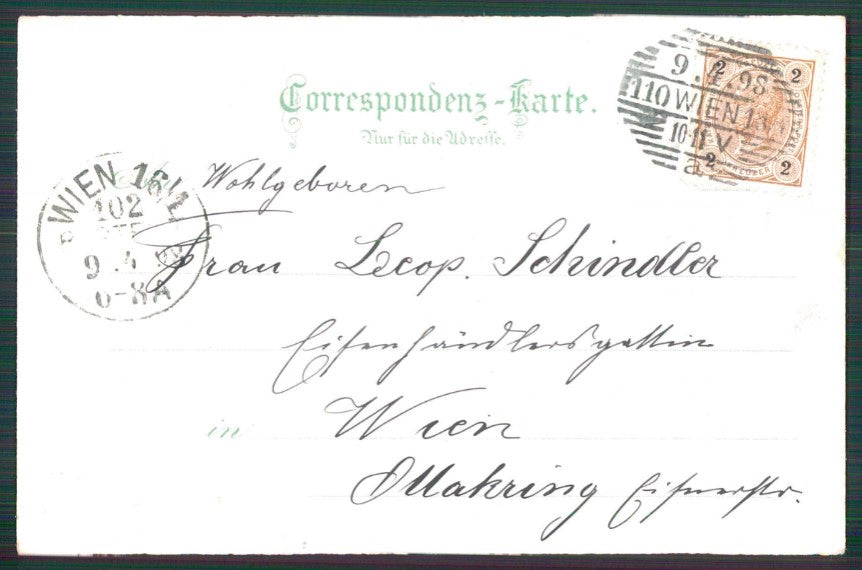 Correspondenz-Karte.
Nur für die Adresse.
9.4.98
110 WIEN
10-11 V
a
2 2
2 2
WIEN 16/1
102
9.4.98
6-8A
Wohlgeboren
Frau Leop. Schindler
Eisenhändlersgattin
in Wien
Ottakring